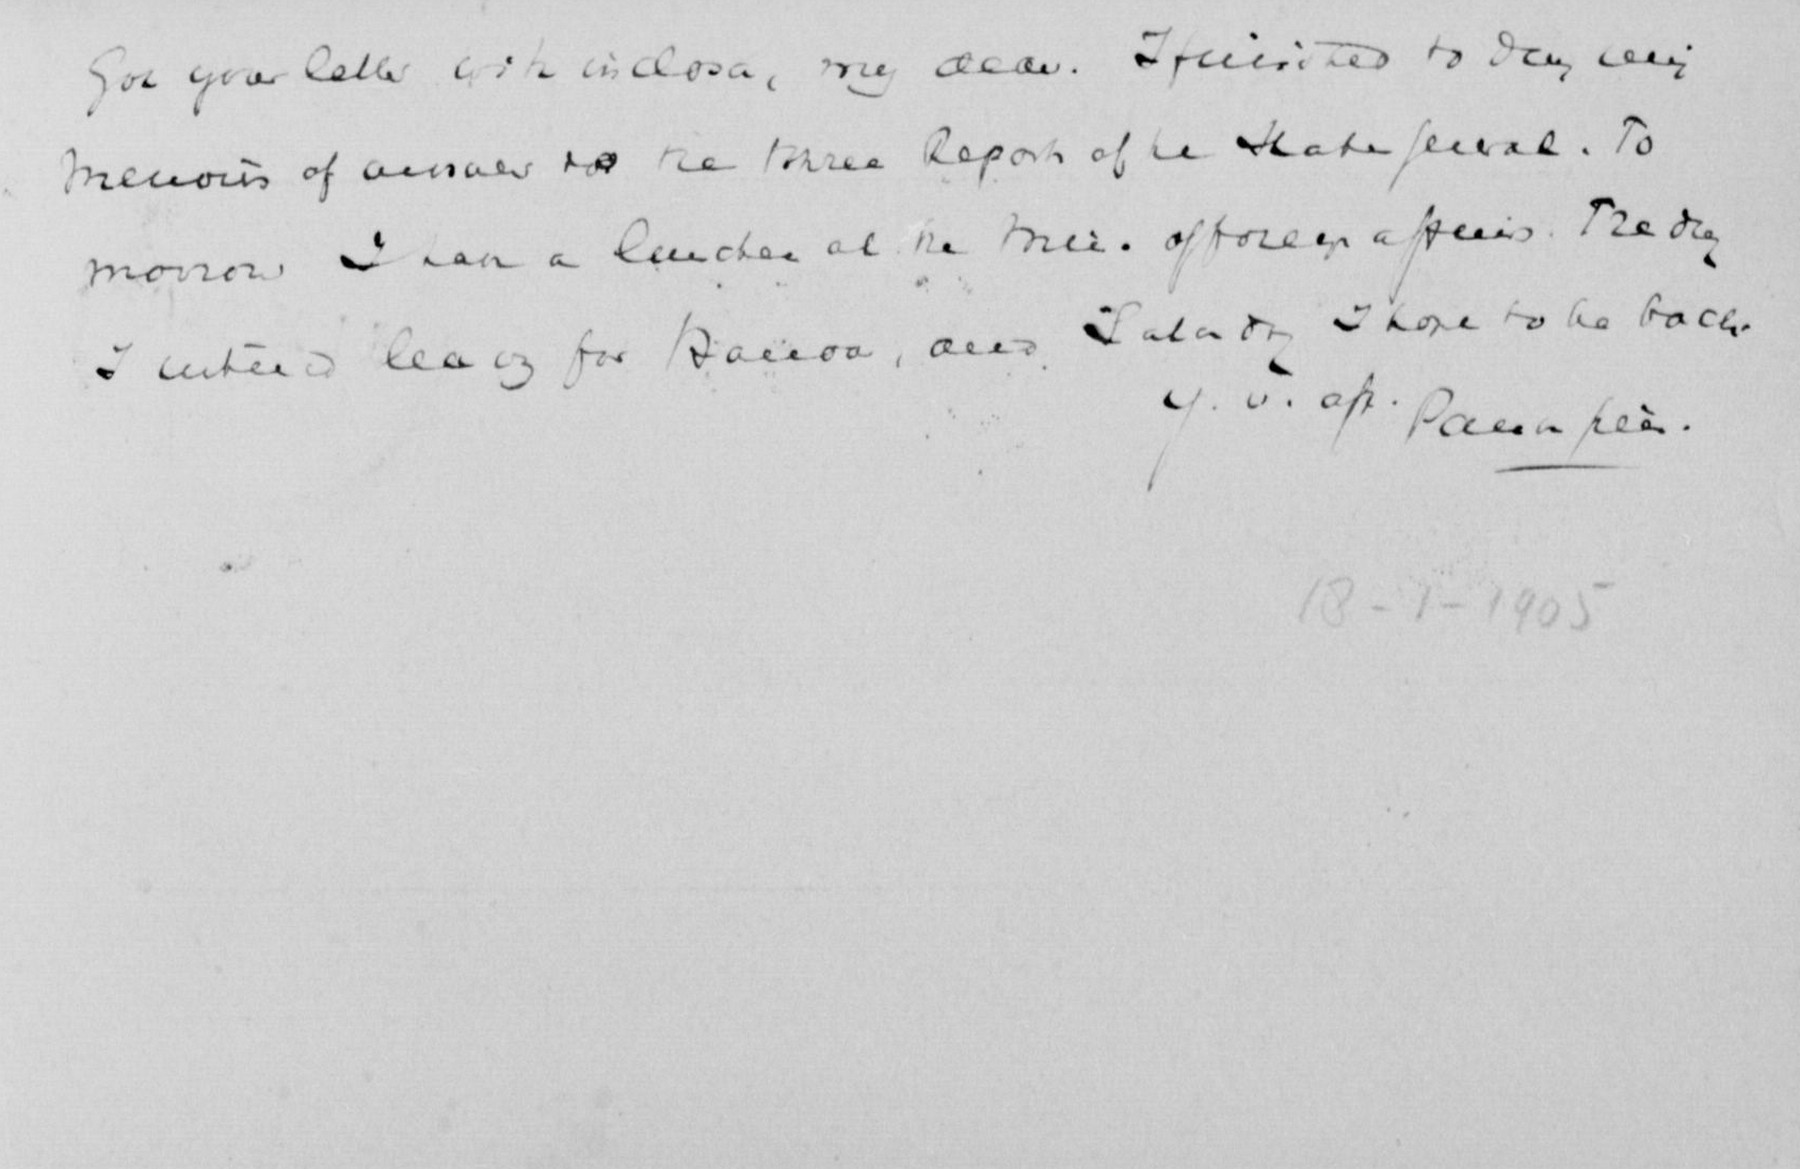 Got your letter with inclosa, my dear. I finished to day my
Memoirs of answer to the three Reports of he State general. To
morrow I have a lunchen at the Min. of foreign affairs. The day
I intend leavg for Hanoa, and Saturday I hope to be back.
y. v. aff. Pater
18-1-1905